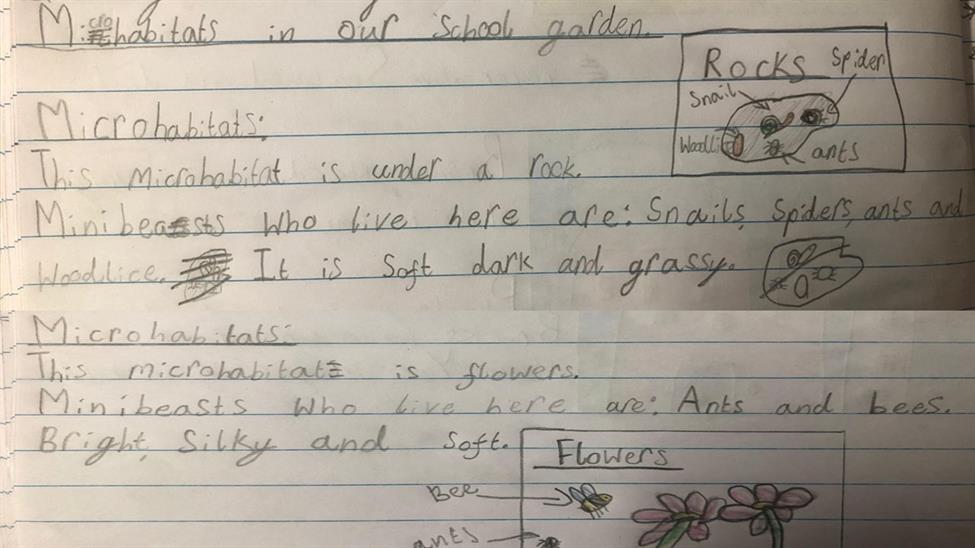 Microhabitats in our school garden.
Rocks
Spider
Snail
ants
Microhabitats:
This microhabitat is under a rock.
Minibeasts who live here are: Snails, Spiders, ants and
Woodlice. It is soft dark and grassy.
Microhabitats:
This microhabitat is flowers.
Minibeasts who live here are: Ants and bees.
Bright, Silky and soft.
Flowers
Bee
ants